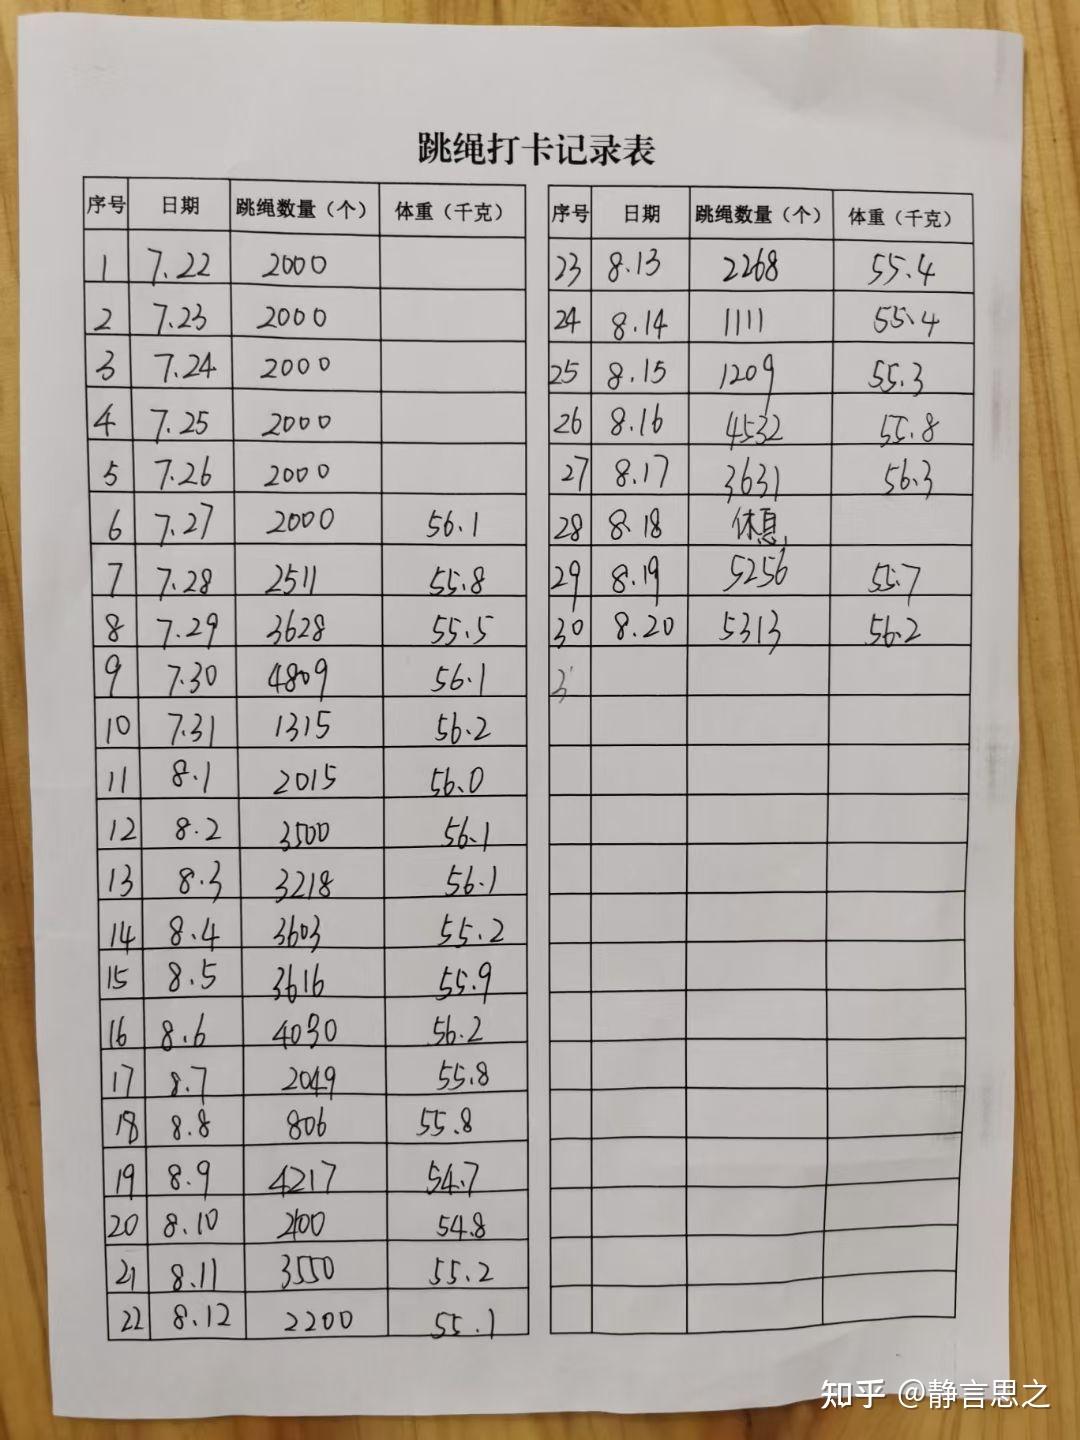 跳绳打卡记录表
序号 日期 跳绳数量（个） 体重（千克）
1 7.22 2000
2 7.23 2000
3 7.24 2000
4 7.25 2000
5 7.26 2000
6 7.27 2000 56.1
7 7.28 2511 55.8
8 7.29 3628 55.5
9 7.30 4809 56.1
10 7.31 1315 56.2
11 8.1 2015 56.0
12 8.2 3500 56.1
13 8.3 3218 56.1
14 8.4 3603 55.2
15 8.5 3616 55.9
16 8.6 4030 56.2
17 8.7 2049 55.8
18 8.8 806 55.8
19 8.9 4217 54.7
20 8.10 54.8
21 8.11 3550 55.2
22 8.12 2200 55.1
序号 日期 跳绳数量（个） 体重（千克）
23 8.13 2268 55.4
24 8.14 1111 55.4
25 8.15 1209 55.3
26 8.16 4532 55.8
27 8.17 3631 56.3
28 8.18 休息
29 8.19 5256 55.7
30 8.20 5313 56.2
知乎 @静言思之